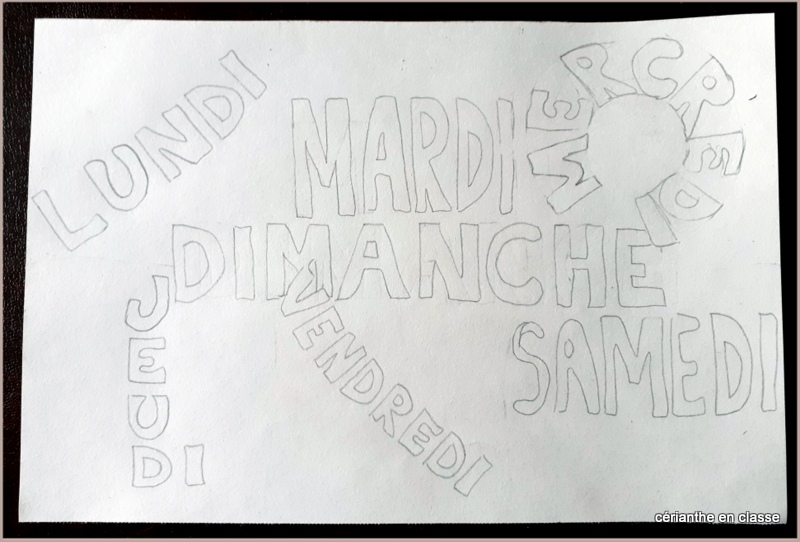 LUNDI
MARDI
MERCREDI
DIMANCHE
JEUDI
VENDREDI
SAMEDI
cérianthe en classe